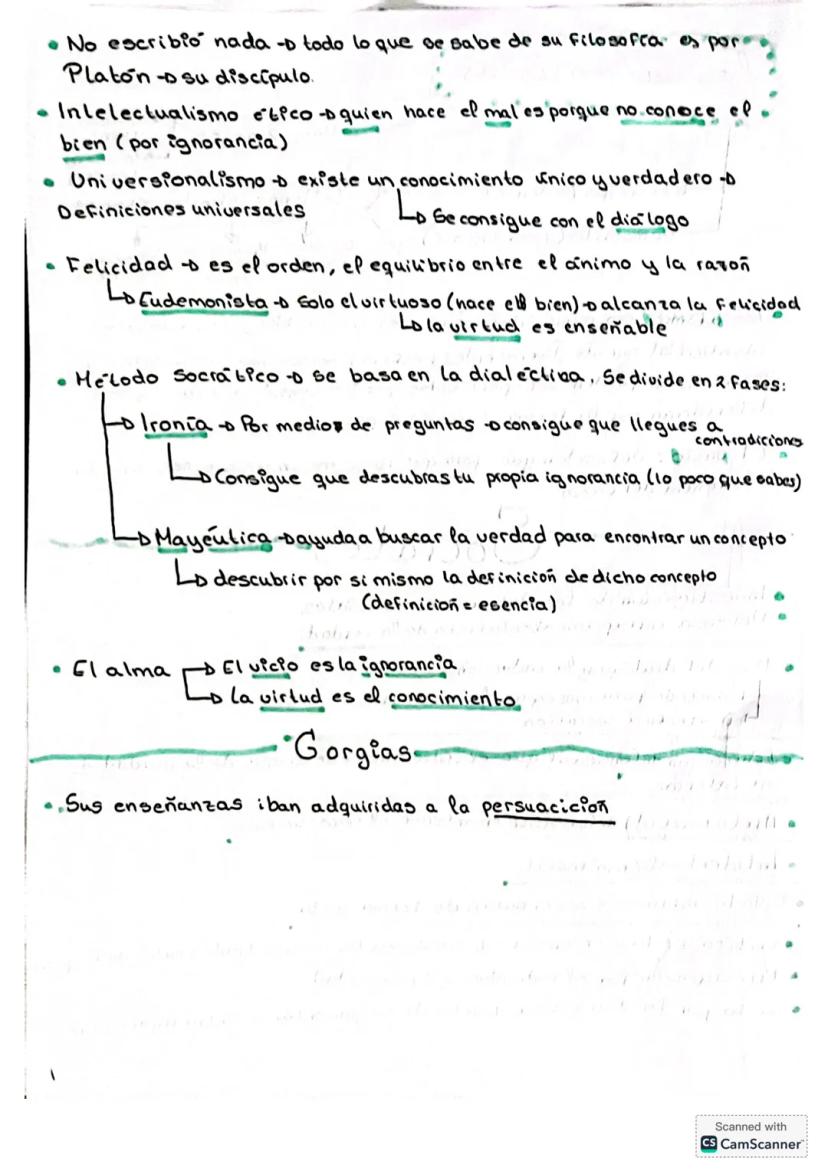 • No escribió nada → todo lo que se sabe de su filosofía es por
Platón → su discípulo.
• Intelectualismo ético → quien hace el mal es porque no conoce el
bien (por ignorancia)
• Universionalismo → existe un conocimiento único y verdadero →
Definiciones universales
↳ Se consigue con el diálogo
• Felicidad → es el orden, el equilibrio entre el ánimo y la razón
↳ Eudemonista → Solo el virtuoso (hace el bien) → alcanza la felicidad
↳ la virtud es enseñable
• Método socrático → se basa en la dialéctica. Se divide en 2 fases:
→ Ironía → Por medio de preguntas → consigue que llegues a
contradiciones
↳ Consigue que descubras tu propia ignorancia (lo poco que sabes)
↳ Mayéutica → ayuda a buscar la verdad para encontrar un concepto
↳ descubrir por si mismo la definición de dicho concepto
(definición = esencia)
• El alma → El vicio es la ignorancia
↳ la virtud es el conocimiento
Gorgias
• Sus enseñanzas iban adquiridas a la persuacicion
Scanned with
CS CamScanner